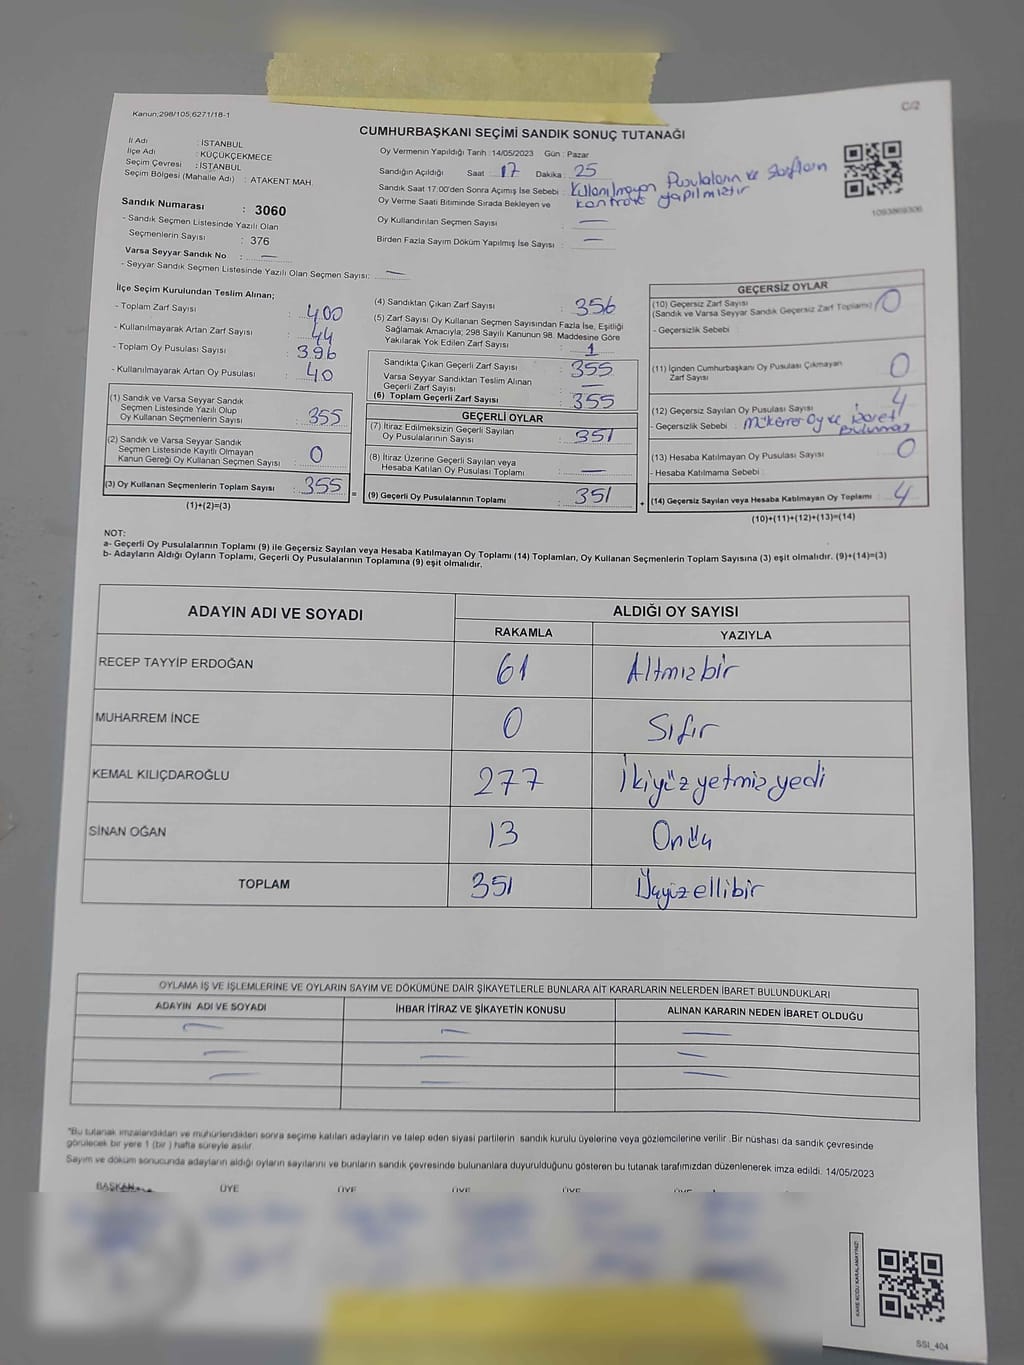 Kanun;298/105,6271/18-1
C/2
CUMHURBAŞKANI SEÇİMİ SANDIK SONUÇ TUTANAĞI
İl Adı : İSTANBUL
İlçe Adı : KÜÇÜKÇEKMECE
Seçim Çevresi : İSTANBUL
Seçim Bölgesi (Mahalle Adı) : ATAKENT MAH.
Sandık Numarası : 3060
- Sandık Seçmen Listesinde Yazılı Olan
Seçmenlerin Sayısı : 376
Varsa Seyyar Sandık No : —
- Seyyar Sandık Seçmen Listesinde Yazılı Olan Seçmen Sayısı: —
Oy Vermenin Yapıldığı Tarih : 14/05/2023 Gün : Pazar
Sandığın Açıldığı Saat 17 Dakika : 25
Sandık Saat 17.00'den Sonra Açılmış İse Sebebi : Kullanılmayan Pusulaların ve
Oy Verme Saati Bitiminde Sırada Bekleyen ve kontrolü yapılmıştır
Oy Kullandırılan Seçmen Sayısı : —
Birden Fazla Sayım Döküm Yapılmış İse Sayısı : —
1093869306
İlçe Seçim Kurulundan Teslim Alınan;
- Toplam Zarf Sayısı : 400
- Kullanılmayarak Artan Zarf Sayısı : 44
- Toplam Oy Pusulası Sayısı : 396
- Kullanılmayarak Artan Oy Pusulası : 40
(1) Sandık ve Varsa Seyyar Sandık
Seçmen Listesinde Yazılı Olup
Oy Kullanan Seçmenlerin Sayısı : 355
(2) Sandık ve Varsa Seyyar Sandık
Seçmen Listesinde Kayıtlı Olmayan
Kanun Gereği Oy Kullanan Seçmen Sayısı : 0
(3) Oy Kullanan Seçmenlerin Toplam Sayısı : 355
(1)+(2)=(3)
(4) Sandıktan Çıkan Zarf Sayısı : 356
(5) Zarf Sayısı Oy Kullanan Seçmen Sayısından Fazla İse, Eşitliği
Sağlamak Amacıyla; 298 Sayılı Kanunun 98. Maddesine Göre
Yakılarak Yok Edilen Zarf Sayısı : 1
Sandıkta Çıkan Geçerli Zarf Sayısı : 355
Varsa Seyyar Sandıktan Teslim Alınan
Geçerli Zarf Sayısı : —
(6) Toplam Geçerli Zarf Sayısı : 355
GEÇERLİ OYLAR
(7) İtiraz Edilmeksizin Geçerli Sayılan
Oy Pusulalarının Sayısı : 351
(8) İtiraz Üzerine Geçerli Sayılan veya
Hesaba Katılan Oy Pusulası Toplamı : —
= (9) Geçerli Oy Pusulalarının Toplamı : 351
GEÇERSİZ OYLAR
(10) Geçersiz Zarf Sayısı
(Sandık ve Varsa Seyyar Sandık Geçersiz Zarf Toplamı) 0
- Geçersizlik Sebebi :
(11) İçinden Cumhurbaşkanı Oy Pusulası Çıkmayan
Zarf Sayısı : 0
(12) Geçersiz Sayılan Oy Pusulası Sayısı : 4
- Geçersizlik Sebebi : Mükerrer Oy ve İşaret
(13) Hesaba Katılmayan Oy Pusulası Sayısı : 0
- Hesaba Katılmama Sebebi :
+ (14) Geçersiz Sayılan veya Hesaba Katılmayan Oy Toplamı : 4
(10)+(11)+(12)+(13)=(14)
NOT:
a- Geçerli Oy Pusulalarının Toplamı (9) ile Geçersiz Sayılan veya Hesaba Katılmayan Oy Toplamı (14) Toplamları, Oy Kullanan Seçmenlerin Toplam Sayısına (3) eşit olmalıdır. (9)+(14)=(3)
b- Adayların Aldığı Oyların Toplamı, Geçerli Oy Pusulalarının Toplamına (9) eşit olmalıdır.
ADAYIN ADI VE SOYADI ALDIĞI OY SAYISI
RAKAMLA YAZIYLA
RECEP TAYYİP ERDOĞAN 61 Altmışbir
MUHARREM İNCE 0 Sıfır
KEMAL KILIÇDAROĞLU 277 İkiyüzyetmişyedi
SİNAN OĞAN 13 Onüç
TOPLAM 351 Üçyüzellibir
OYLAMA İŞ VE İŞLEMLERİNE VE OYLARIN SAYIM VE DÖKÜMÜNE DAİR ŞİKAYETLERLE BUNLARA AİT KARARLARIN NELERDEN İBARET BULUNDUKLARI
ADAYIN ADI VE SOYADI İHBAR İTİRAZ VE ŞİKAYETİN KONUSU ALINAN KARARIN NEDEN İBARET OLDUĞU
— — —
— — —
— — —
*Bu tutanak imzalandıktan ve mühürlendikten sonra seçime katılan adayların ve talep eden siyasi partilerin sandık kurulu üyelerine veya gözlemcilerine verilir .Bir nüshası da sandık çevresinde
görülecek bir yere 1 (bir ) hafta süreyle asılır.
Sayım ve döküm sonucunda adayların aldığı oyların sayılarını ve bunların sandık çevresinde bulunanlara duyurulduğunu gösteren bu tutanak tarafımızdan düzenlenerek imza edildi. 14/05/2023
BAŞKAN ÜYE ÜYE ÜYE ÜYE ÜYE
KARE KODU KARALAMAYINIZ!
SSI_404